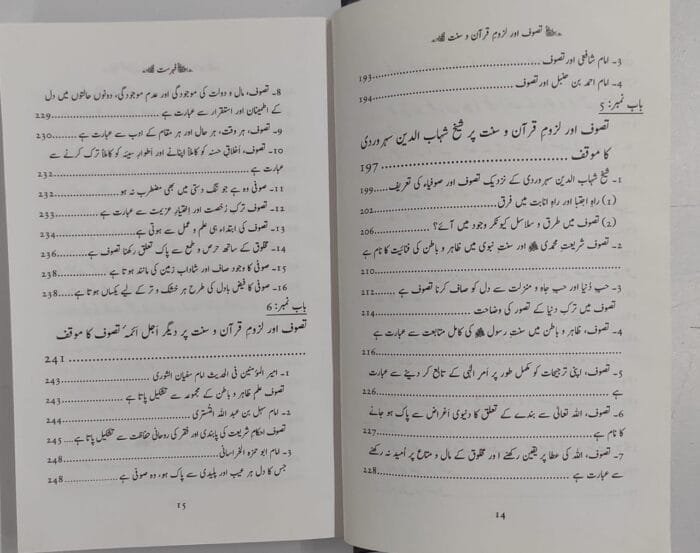 تصوف اور لزومِ قرآن و سنت
3۔ امام شافعی اور تصوف
193
4۔ امام احمد بن حنبل اور تصوف
194
باب نمبر: 5
تصوف اور لزومِ قرآن و سنت پر شیخ شہاب الدین سہروردی
کا موقف
197
1۔ شیخ شہاب الدین سہروردی کے نزدیک تصوف اور صوفیاء کی تعریف
199
(1) راہِ اجتبا اور راہِ انابت میں فرق
202
(2) تصوف میں طرق و سلاسل کیونکر وجود میں آئے؟
206
2۔ تصوف شریعتِ محمدی ﷺ اور سنتِ نبوی میں ظاہر و باطن کی فنائیت کا نام ہے
210
3۔ حبِ دُنیا اور حبِ جاہ و منزلت سے دل کو صاف کرنا تصوف ہے
212
تصوف میں ترکِ دنیا کے تصور کی وضاحت
214
4۔ تصوف، ظاہر و باطن میں سنتِ رسول ﷺ کی کامل متابعت سے عبارت ہے
216
5۔ تصوف، اپنی ترجیحات کو مکمل طور پر اَمرِ الٰہی کے تابع کر دینے سے عبارت
ہے
226
6۔ تصوف، اللہ تعالیٰ سے بندے کے تعلق کا دنیوی اَغراض سے پاک ہو جانے
کا نام ہے
227
7۔ تصوف، اللہ کی عطا پر یقین رکھنے اور مخلوق کے مال و متاع پر اُمید نہ رکھنے
سے عبارت ہے
228
14
فہرست
8۔ تصوف، مال و دولت کی موجودگی اور عدم موجودگی، دونوں حالتوں میں دل
کے اطمینان اور استقرار سے عبارت ہے
229
9۔ تصوف، ہر وقت، ہر حال اور ہر مقام کے ادب سے عبارت ہے
230
10۔ تصوف، اَخلاقِ حسنہ کو کاملاً اپنانے اور اَطوارِ سیئہ کو کاملاً ترک کرنے سے
عبارت ہے
232
11۔ صوفی وہ ہے جو تنگ دستی میں بھی مضطرب نہ ہو
232
12۔ تصوف ترکِ رُخصت اور اِختیارِ عزیمت سے عبارت ہے
233
13۔ تصوف کی ابتداء ہی علم و عمل سے ہوتی ہے
234
14۔ مخلوق کے ساتھ حرص و طمع سے پاک تعلق رکھنا تصوف ہے
236
15۔ صوفی کا وجود صاف اور شاداب زمین کی مانند ہوتا ہے
238
16۔ صوفی کا فیض بادل کی طرح ہر خشک و تر کے لیے یکساں ہوتا ہے
238
باب نمبر: 6
تصوف اور لزومِ قرآن و سنت پر دیگر اَجل ائمہ تصوف کا موقف
241
1۔ امیر المؤمنین فی الحدیث امام سفیان الثوری
243
تصوف علمِ ظاہر و باطن کے مجموعہ سے تشکیل پاتا ہے
243
2۔ امام سہل بن عبد اللہ التستری
244
تصوف احکامِ شریعت کی پابندی اور فقر کی روحانی حفاظت سے تشکیل پاتا ہے
245
3۔ امام ابو حمزہ الخراسانی
248
جس کا دل ہر عیب اور پلیدی سے پاک ہو، وہ صوفی ہے
248
15